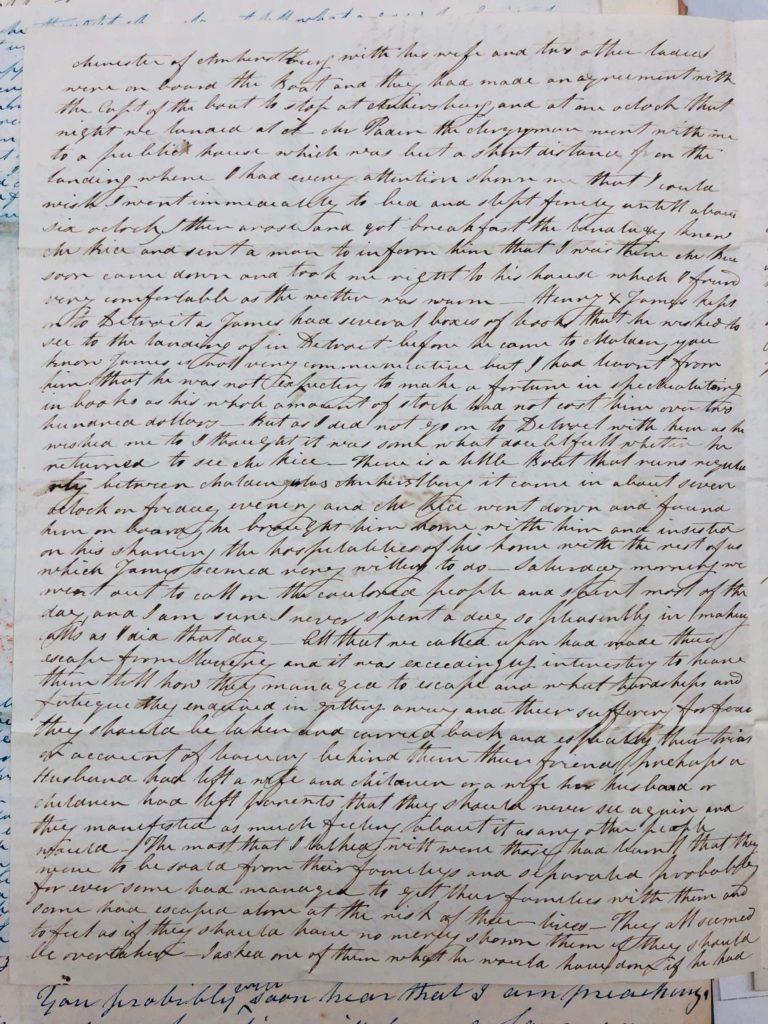 minister of Amherstburg with his wife and two other ladies
were on board the Boat and they had made an agreement with
the Capt of the boat to stop at Amhersburg and at one oclock that
night we landed at it Mr the clergyman went with me
to a public house which was but a short distance from the
landing where I had every attention shown me that I could
wish I went immediately to bed and slept finely untill about
six oclock I then arose and got breakfast the knew
Mr Rice and sent a man to inform him that I was there Mr Rice
soon came down and took me right to his house which I found
very comfortable as the wether was warm — Henry & James kept
on to Detroit as James had several boxes of books that he wished to
see to the landing of in Detroit before he came to Malden, you
know James is not very communicative but I had learnt from
him that he was not expecting to make a fortune in speculating
in books as his whole amount of stock had not cost him over two
hundred dollars — But as I did not go on to Detroit with him as he
wished me to I thought it was some what doubtfull whether he
returned to see Mr Rice — There is a little Boat that runs regula
rly between Malden Amherstburg it came in about seven
oclock on friday evening and Mr Rice went down and found
him on board, he brought him home with him and insisted
on his sharing the hospitalities of his home with the rest of us
which James seemed very willing to do — Saturday morning we
went out to call on the coulored people and spent most of the
day, and I am sure I never spent a day so pleasently in making
calls as I did that day — All that we called upon had made their
escape from Slavery and it was exceedingly interesting to heare
them tell how they managed to escape and what hardships and
fatigue they endured in getting away and their suffering for fear
they should be taken and carried back and especially their trials
on account of leaving behind them their friends, prehaps a
Husband had left a wife and children or a wife her husband or
children had left parents that they should never see again and
they manifested as much feeling about it as any other people
would — The most that I talked with were those had learnt that they
were to be soald from their famileys and separated probably
for ever some had managed to get their families with them and
some had escaped alone at the risk of their lives — They all seemed
to feel as if they should have no mercy shown them if they should
be overtaken — I asked one of them what he would have done if he had
You probibly will soon hear that I am preaching.